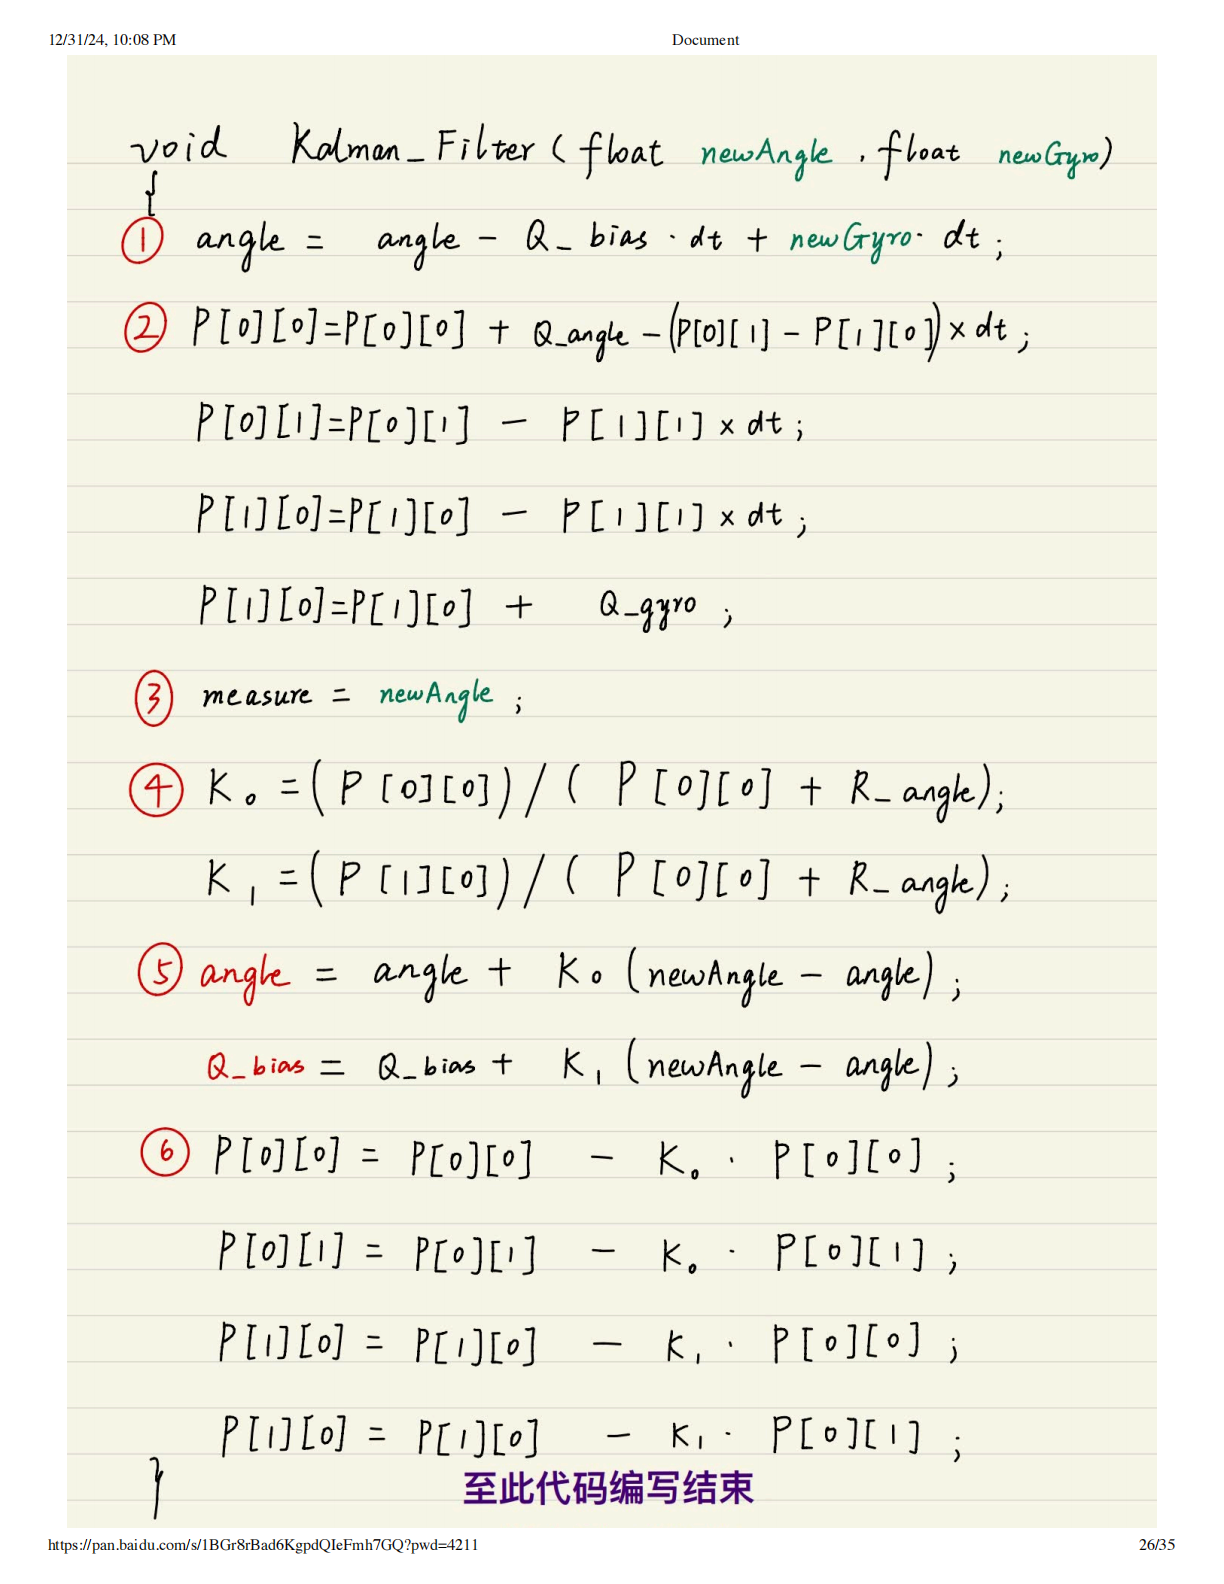 12/31/24, 10:08 PM Document
void Kalman_Filter (float newAngle , float newGyro)
{
① angle = angle - Q_bias · dt + newGyro · dt ;
② P[0][0]=P[0][0] + Q_angle -(P[0][1] - P[1][0])× dt ;
P[0][1]=P[0][1] - P[1][1] × dt ;
P[1][0]=P[1][0] - P[1][1] × dt ;
P[1][0]=P[1][0] + Q_gyro ;
③ measure = newAngle ;
④ K₀ =( P [0][0]) / ( P [0][0] + R_angle);
K₁ =( P [1][0]) / ( P [0][0] + R_angle);
⑤ angle = angle + K₀ (newAngle - angle) ;
Q_bias = Q_bias + K₁ (newAngle - angle) ;
⑥ P[0][0] = P[0][0] - K₀ · P[0][0] ;
P[0][1] = P[0][1] - K₀ · P[0][1] ;
P[1][0] = P[1][0] - K₁ · P[0][0] ;
P[1][0] = P[1][0] - K₁ · P[0][1] ;
}
至此代码编写结束
https://pan.baidu.com/s/1BGr8rBad6KgpdQIeFmh7GQ?pwd=4211 26/35